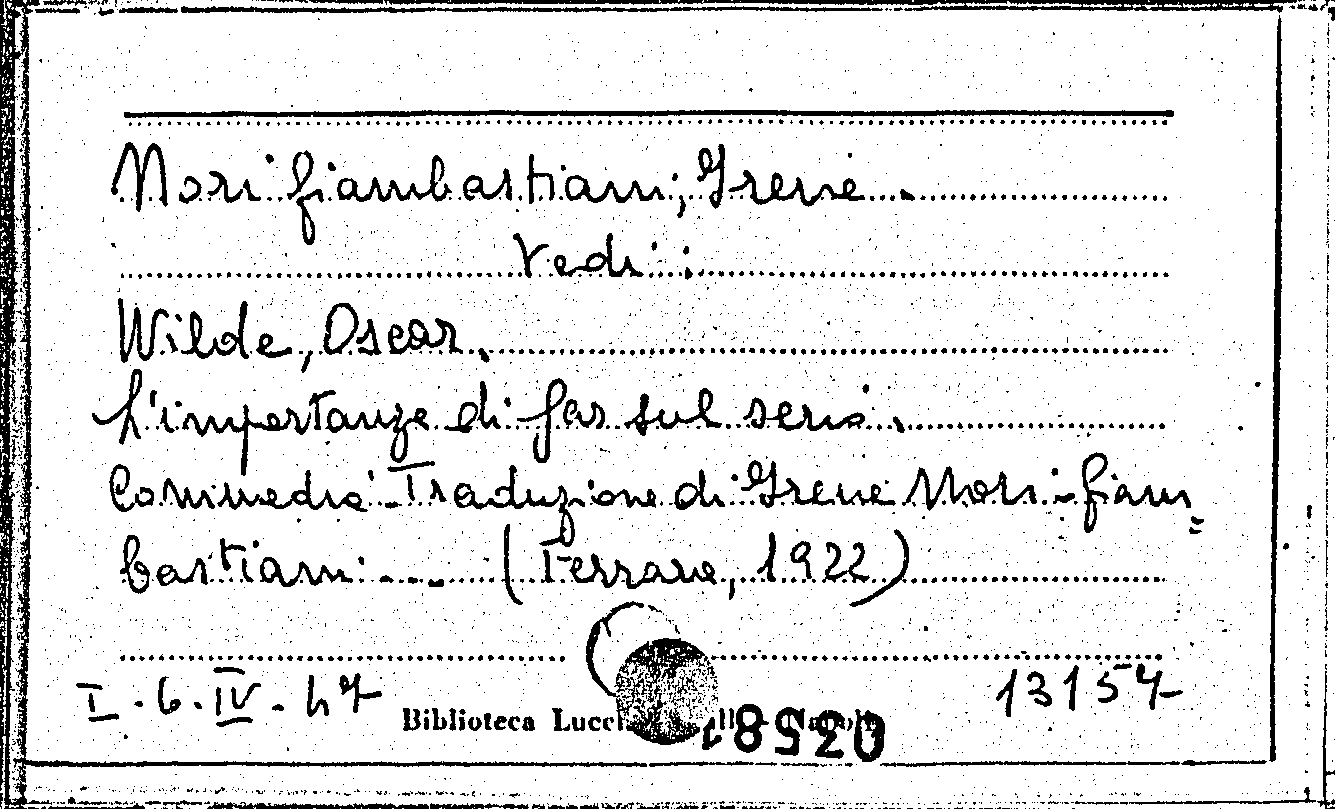 Nori Giambastiani, Irene.
Vedi:
Wilde, Oscar.
L'importanza di far sul serio.
Commedia. Traduzione di Irene Nori-Giam=
bastiani... (Ferrara, 1922)
I.6.IV.47
13157
Biblioteca